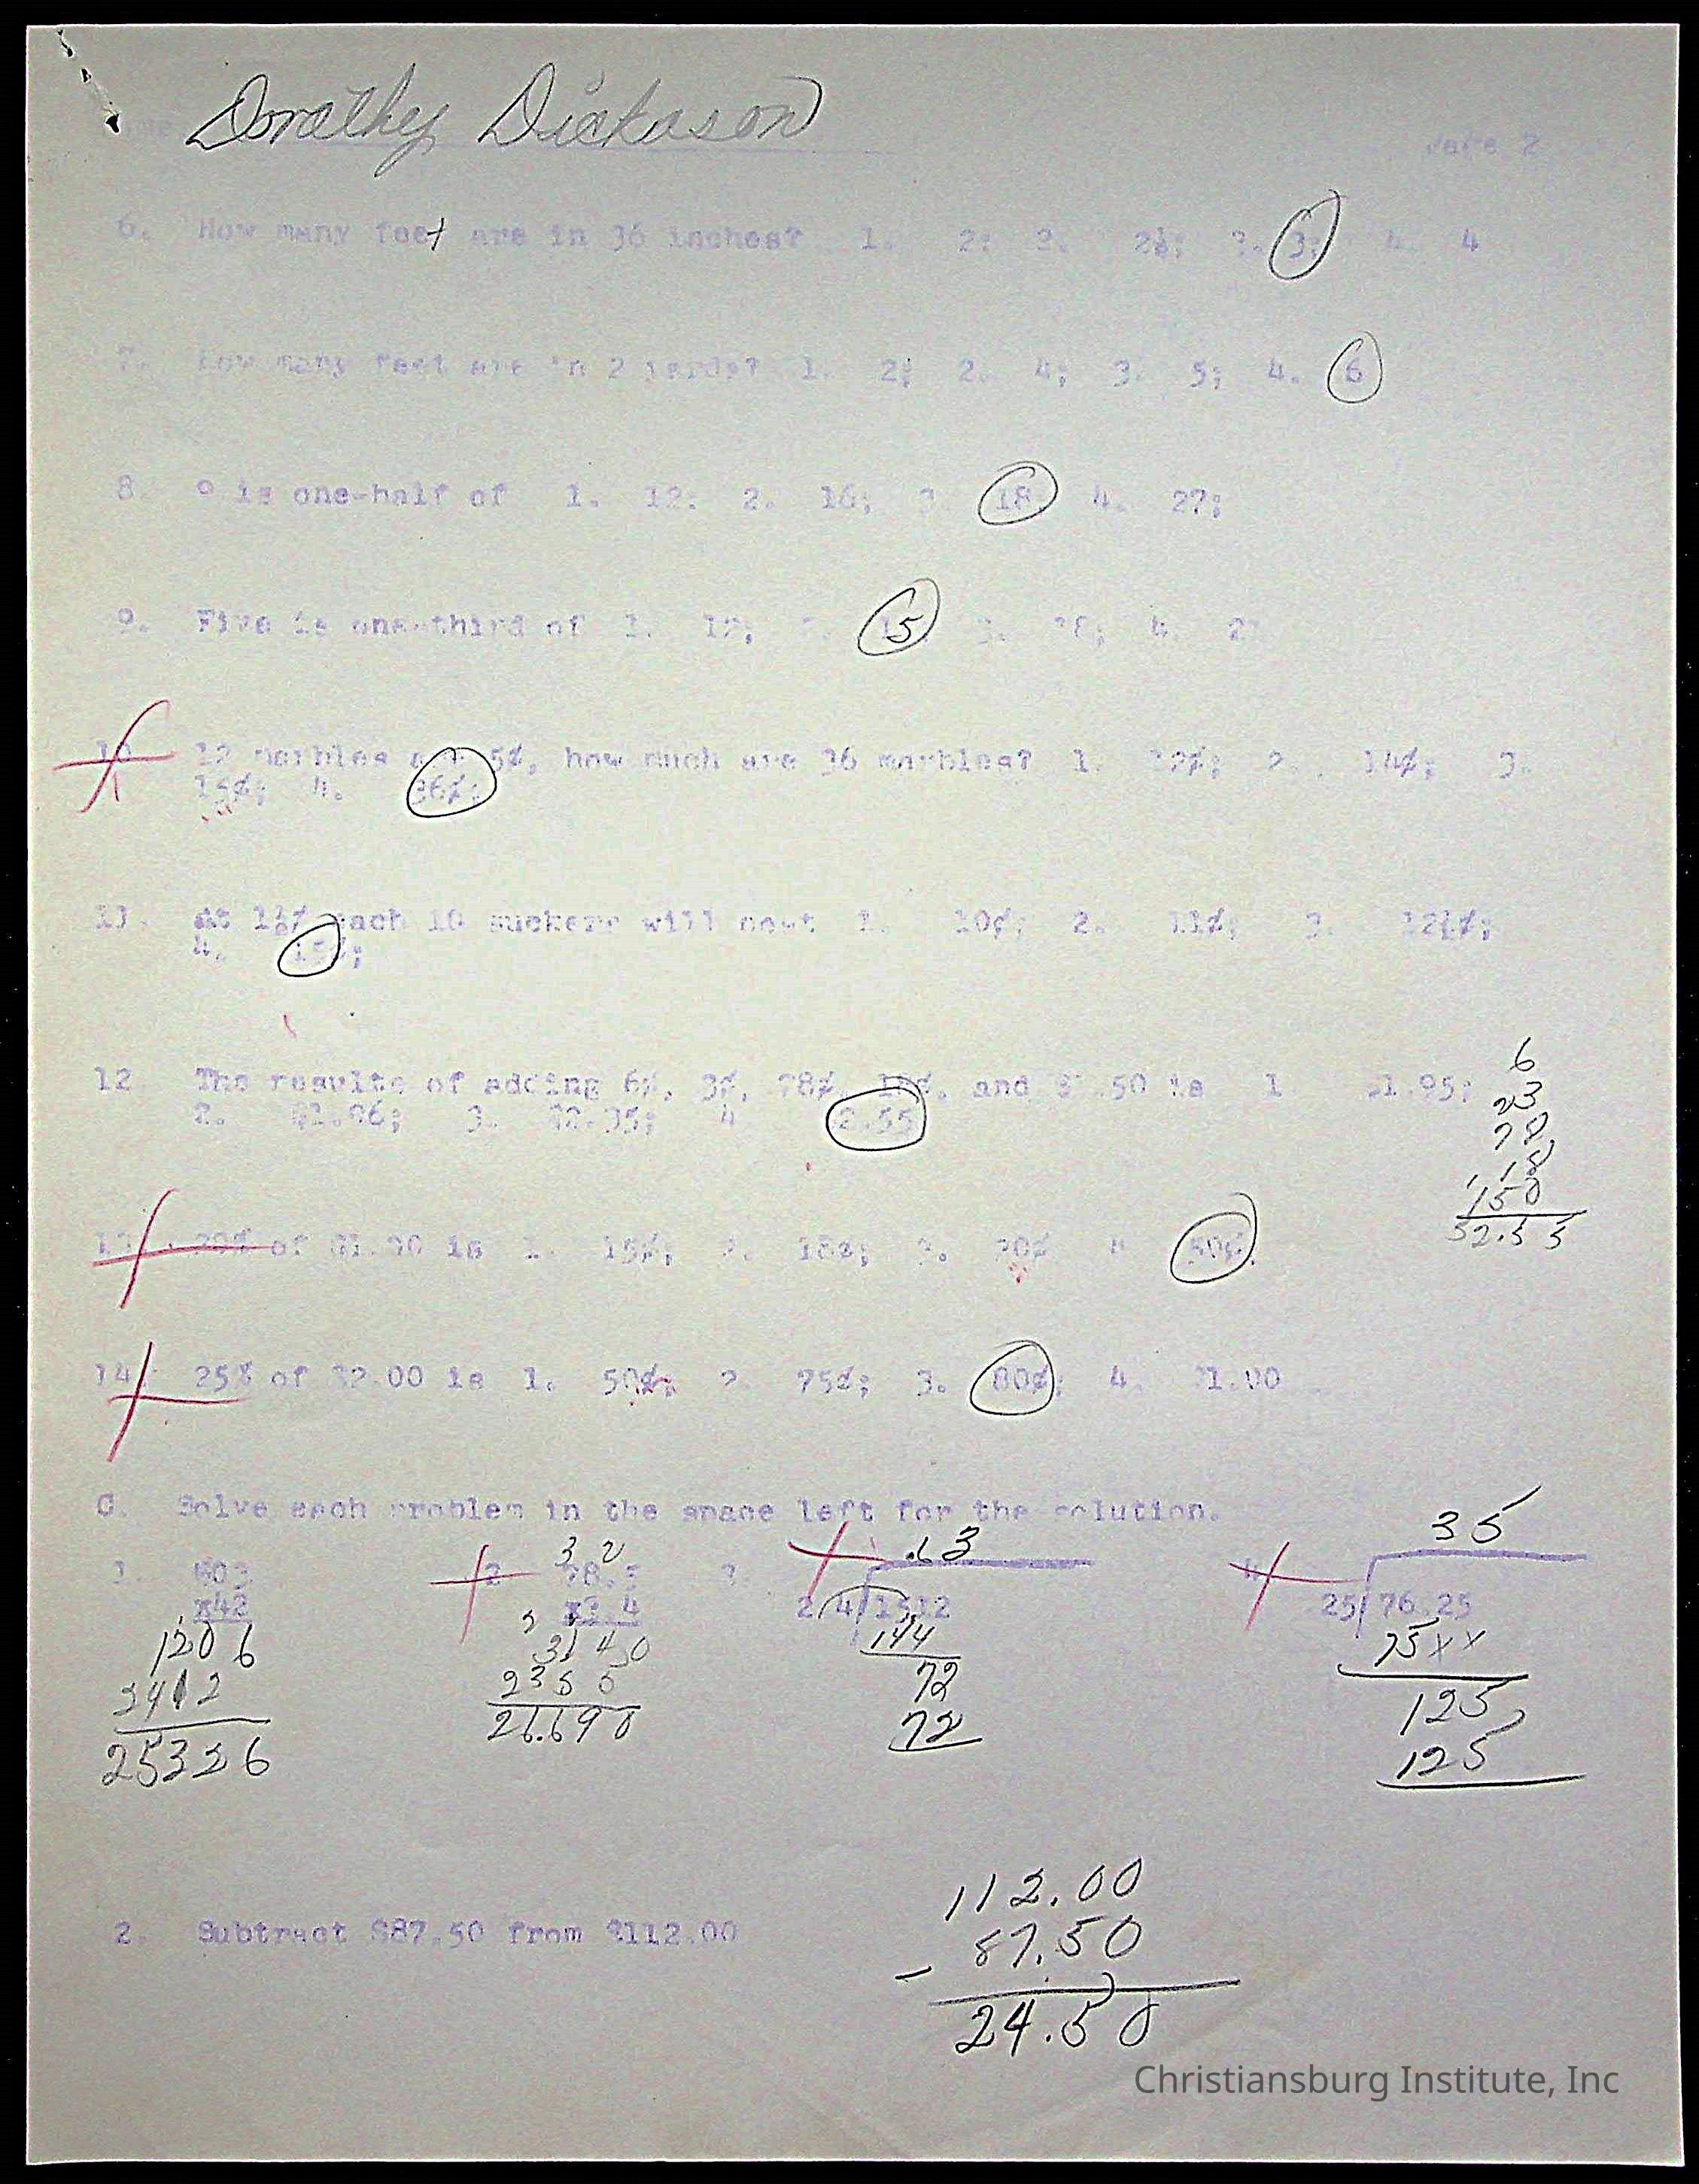 Dorothy Dickason
Page 2
6. How many feet are in 36 inches? 1. 2; 2. 2½; 3. 3; 4. 4
7. How many feet are in 2 yards? 1. 2; 2. 4; 3. 5; 4. 6
8. 9 is one-half of 1. 12; 2. 16; 3. 18 4. 27;
9. Five is one-third of 1. 12; 2. 15 3. 18; 4.
10. 12 marbles are 5¢, how much are 36 marbles? 1. 12¢; 2. 14¢; 3.
15¢; 4. 36¢;
11. At 1½¢ each 10 suckers will cost 1. 10¢; 2. 11¢; 3. 12½¢;
4. 15¢;
12. The results of adding 6¢, 3¢, 78¢, 18¢, and $1.50 is 1. $1.95;
2. $1.96; 3. $2.35; 4. 2.55
6
3
78
18
150
$2.55
13. 20% of is 1. 15¢; 2. 18¢; 3. 20¢ 4. 50¢
14. 25% of $2.00 is 1. 50¢; 2. 75¢; 3. 80¢; 4. $1.00
C. Solve each problem in the space left for the solution.
1. 603
x42
1206
2412
25326
2. 78.5
x3.4
3140
2355
26.690
3. .63
2.4/1512
144
72
72
4. 35
25/76.25
75xx
125
125
2. Subtract $87.50 from $112.00
112.00
- 87.50
24.50
Christiansburg Institute, Inc